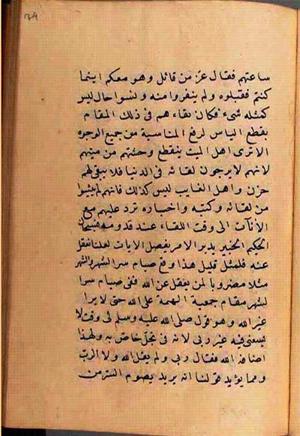 ساعتهم فقال عز من قائل وهو معكم اينما
كنتم فقبلوه ولم ينفروا منه ولنسوا حال ليس
كمثله شيء فكان بقاءهم في ذلك المقام
يقطع الياس لرفع المناسبة من جميع الوجوه
الا ترى اهل الميت ينقطع وحشتهم من ميتهم
لانهم لا يرجون لقائه في الدنيا فلا يبقى لهم
حزن واهل الغايب ليس كذلك فانهم لم ييئسوا
من لقائه وكتبه واخباره ترد عليهم مع
الانات الى وقت اللقاء عند قدومه فسبحان
الحكيم الخبير يدبر الامر يفصل الايات لعلنا نعقل
عنه فلمثل قليل هذا وقع صيام سرا الشهر والشهر
مثلا مضروبا لمن يعقل عن الله ففي صيام سرا
لشهر مقام جمعية الهمة على الله حتى لا يرا
غير الله وهو قول صلى الله عليه وسلم لي وقت لا
يسعني فيه غير ربي لانه في تجل خاص به ولهذا
اضافه الله فقال ربي ولم يقل الله ولا الرب
ومما يؤيد قولنا انه يريد بصوم السرر من